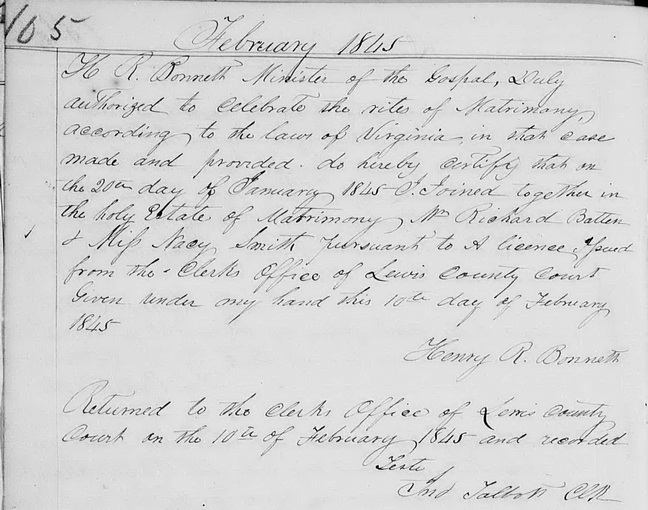 105
February 1845
H R. Bonneth Minister of the Gospal, Duly
authorized to Celebrate the rites of Matrimony,
according to the laws of Virginia in that case
made and provided. do hereby certify that on
the 20th day of January 1845 I. Joined together in
the holy Estate of Matrimony Mr Richard Batten
& Miss Nacy Smith pursuant to A licence issued
from the Clerks Office of Lewis County Court
Given under my hand this 10th day of February
1845
Henry R. Bonneth
Returned to the Clerks Office of Lewis County
Court on the 10th of February 1845 and recorded
Teste
Jno Talbott Clk